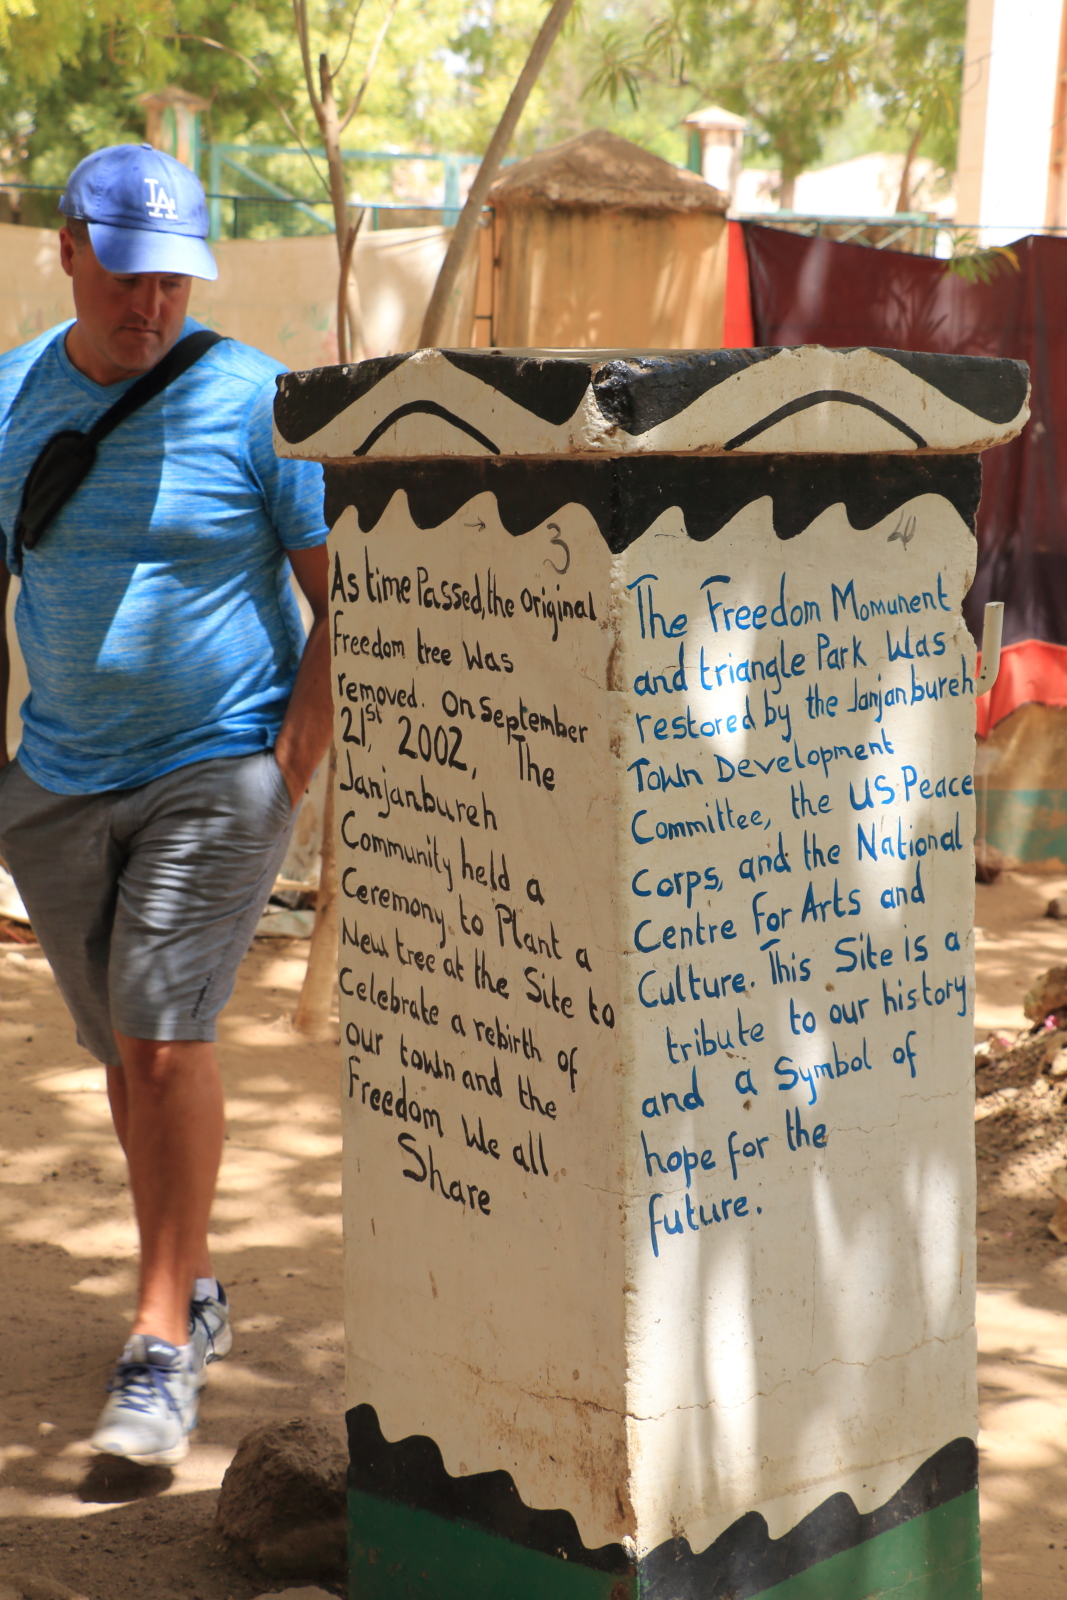 LA
3
As time Passed, the Original
freedom tree was
removed. On September
21st, 2002, The
Janjanbureh
Community held a
Ceremony to Plant a
New tree at the Site to
Celebrate a rebirth of
our town and the
Freedom We all
Share
4
The Freedom Momunent
and triangle Park Was
restored by the Janjanbureh
Town Development
Committee, the US Peace
Corps, and the National
Centre for Arts and
Culture. This Site is a
tribute to our history
and a Symbol of
hope for the
future.